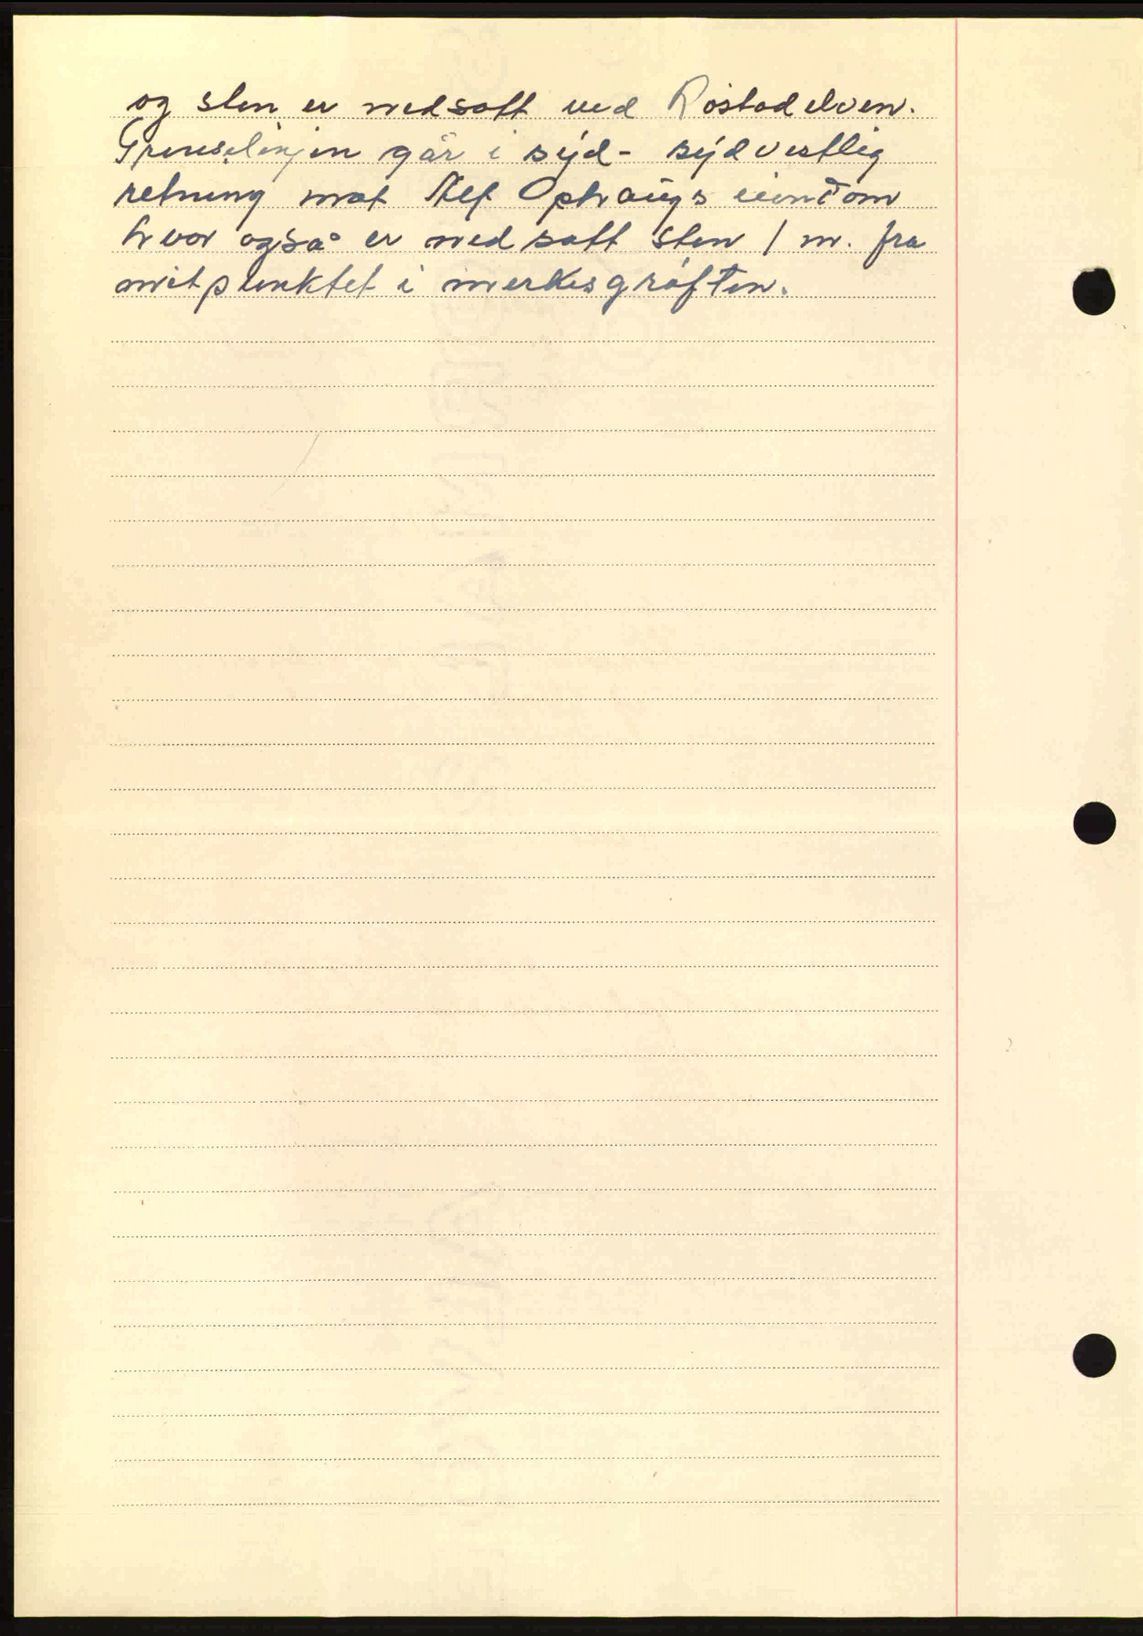 og sten er nedsatt ved Rostadelven.
Grenselinjen går i syd- sydvestlig
retning mot Alf Ophaugs eiendom
hvor også er nedsatt sten 1 m. fra
mitpunktet i merkesgrøften.